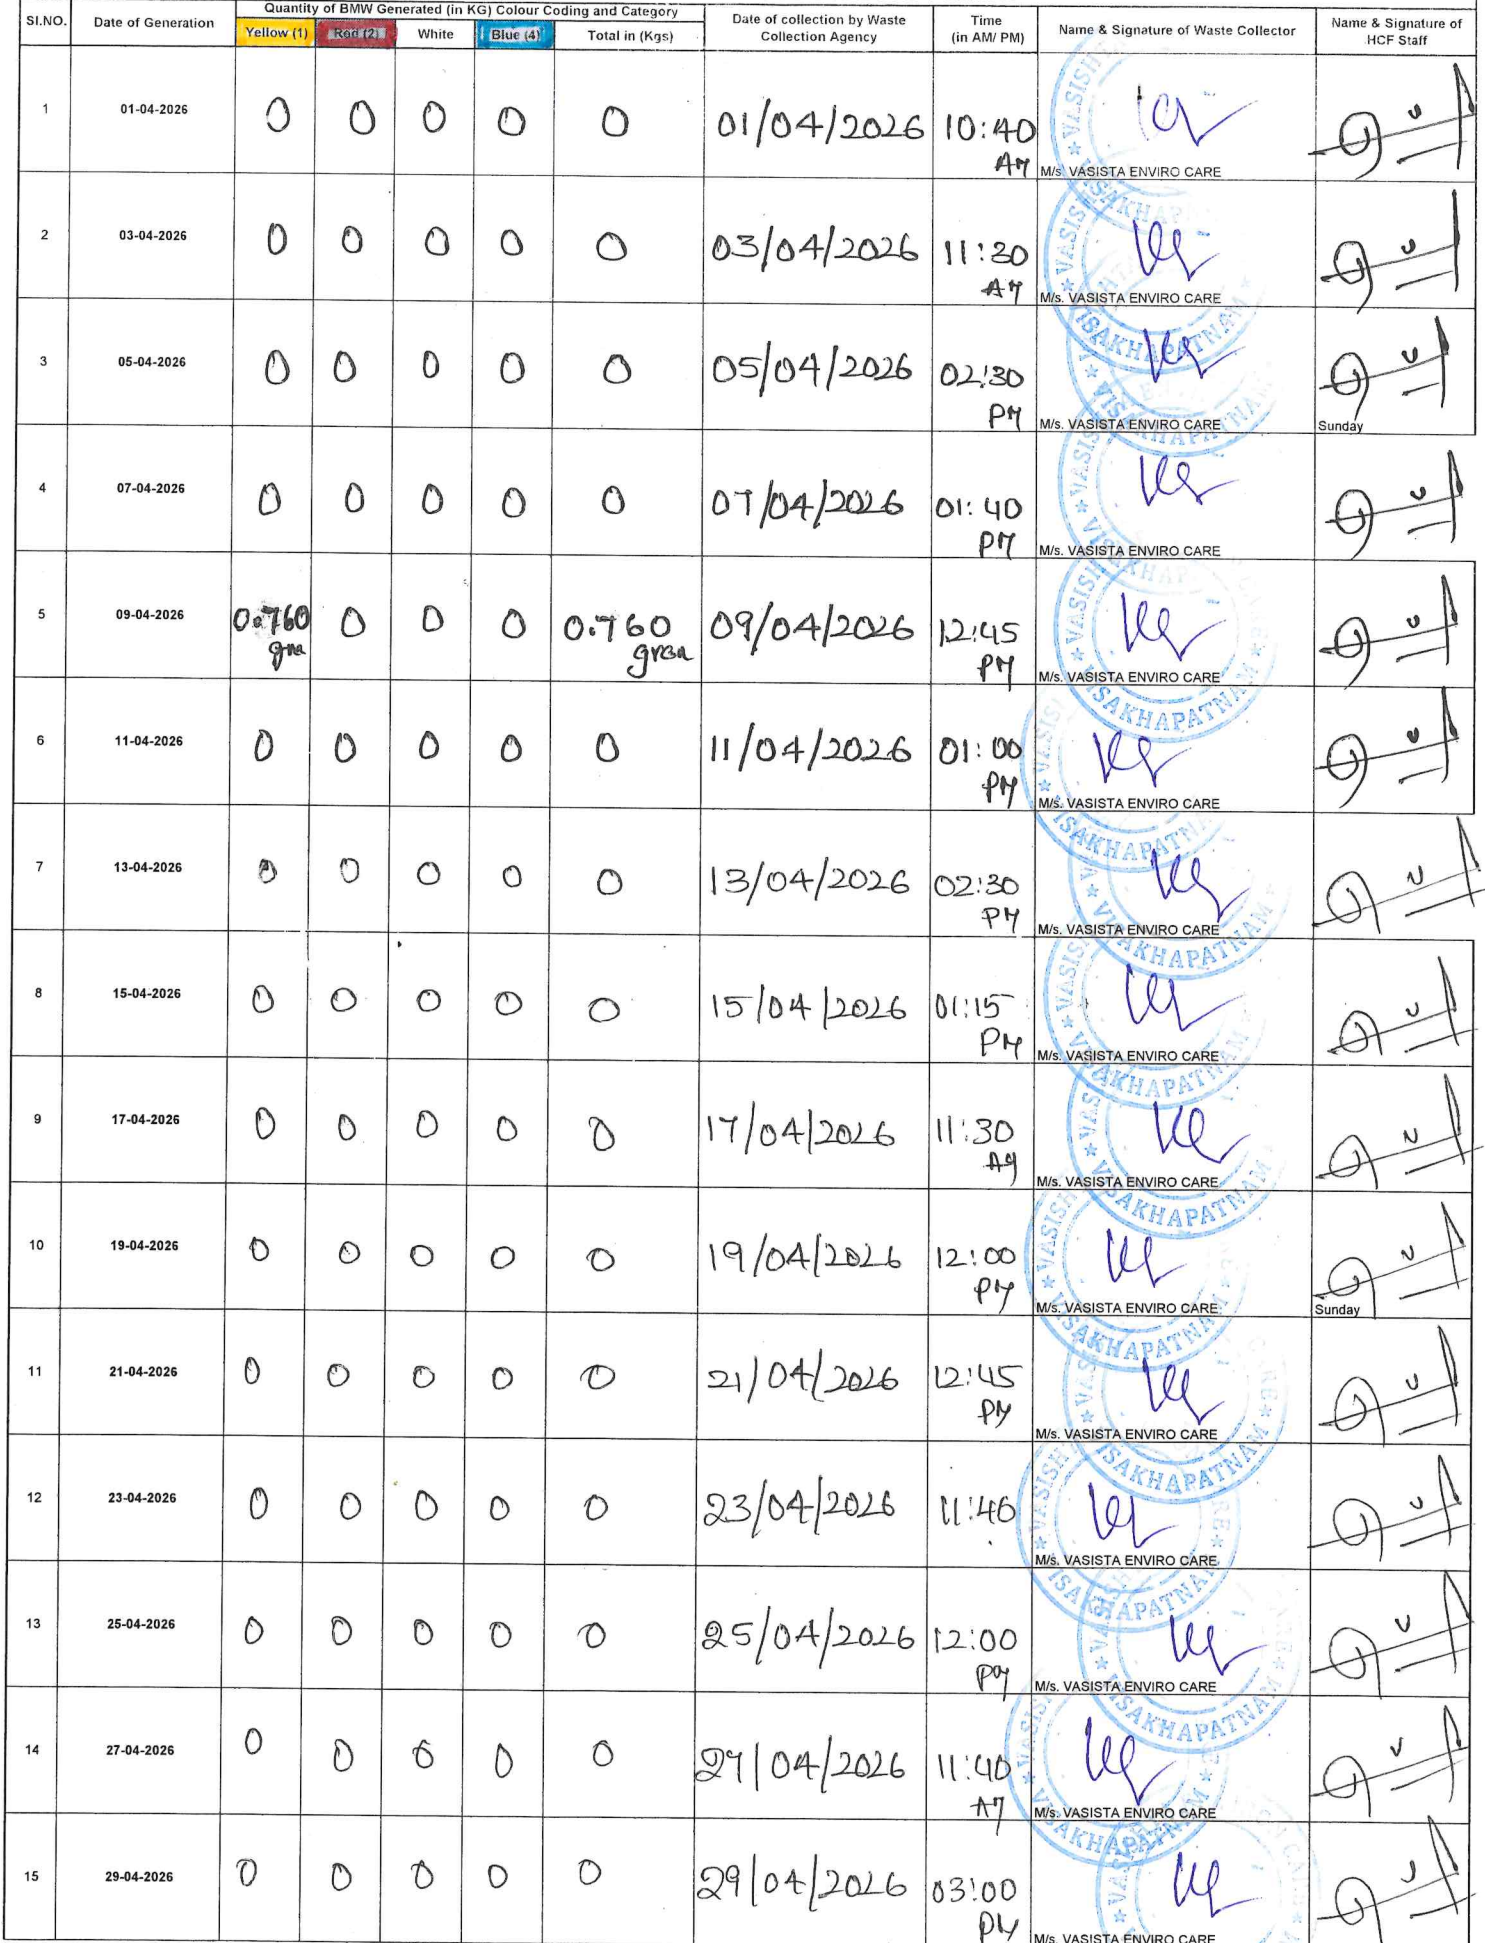 SI.NO. Date of Generation Quantity of BMW Generated (in KG) Colour Coding and Category Date of collection by Waste Collection Agency Time (in AM/ PM) Name & Signature of Waste Collector Name & Signature of HCF Staff
Yellow (1) Red (2) White Blue (4) Total in (Kgs)
1 01-04-2026 0 0 0 0 0 01/04/2026 10:40 AM M/s. VASISTA ENVIRO CARE
2 03-04-2026 0 0 0 0 0 03/04/2026 11:30 AM M/s. VASISTA ENVIRO CARE
3 05-04-2026 0 0 0 0 0 05/04/2026 02:30 PM M/s. VASISTA ENVIRO CARE Sunday
4 07-04-2026 0 0 0 0 0 07/04/2026 01:40 PM M/s. VASISTA ENVIRO CARE
5 09-04-2026 0.760 0 0 0 0.760 09/04/2026 12:45 PM M/s. VASISTA ENVIRO CARE
6 11-04-2026 0 0 0 0 0 11/04/2026 01:00 PM M/s. VASISTA ENVIRO CARE
7 13-04-2026 0 0 0 0 0 13/04/2026 02:30 PM M/s. VASISTA ENVIRO CARE
8 15-04-2026 0 0 0 0 0 15/04/2026 01:15 PM M/s. VASISTA ENVIRO CARE
9 17-04-2026 0 0 0 0 0 17/04/2026 11:30 AM M/s. VASISTA ENVIRO CARE
10 19-04-2026 0 0 0 0 0 19/04/2026 12:00 PM M/s. VASISTA ENVIRO CARE Sunday
11 21-04-2026 0 0 0 0 0 21/04/2026 12:45 PM M/s. VASISTA ENVIRO CARE
12 23-04-2026 0 0 0 0 0 23/04/2026 11:46 M/s. VASISTA ENVIRO CARE
13 25-04-2026 0 0 0 0 0 25/04/2026 12:00 PM M/s. VASISTA ENVIRO CARE
14 27-04-2026 0 0 0 0 0 27/04/2026 11:40 AM M/s. VASISTA ENVIRO CARE
15 29-04-2026 0 0 0 0 0 29/04/2026 03:00 PM M/s. VASISTA ENVIRO CARE